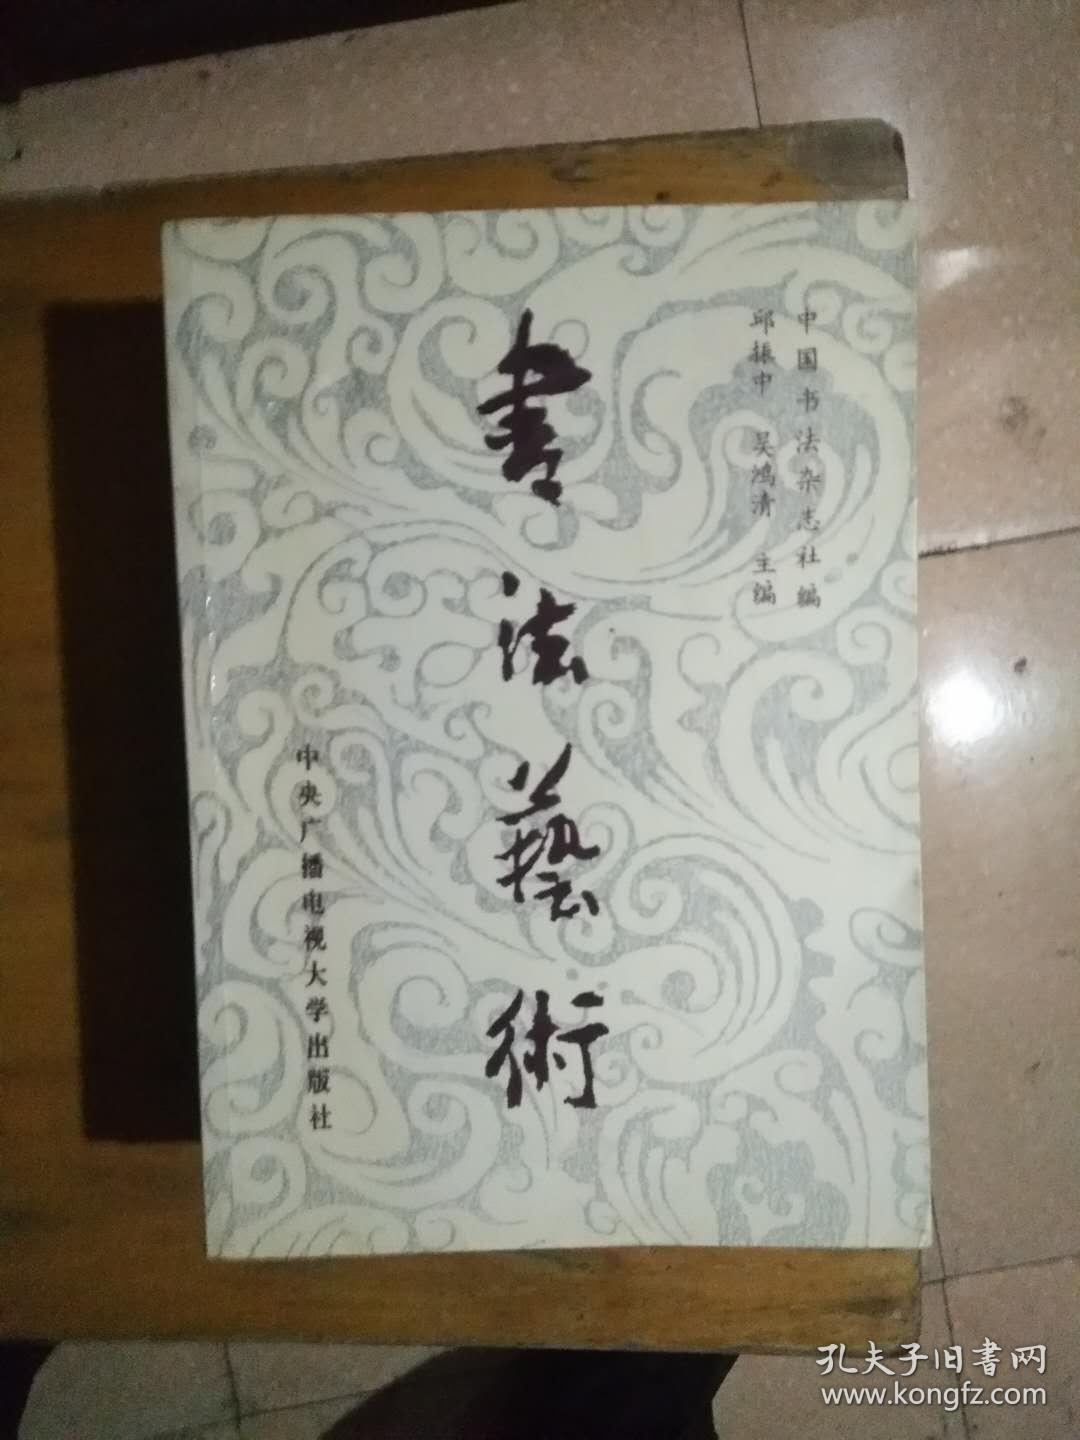 中国书法杂志社编
邱振中 吴鸿清 主编
書法藝術
中央广播电视大学出版社
孔夫子旧書网
www.kongfz.com